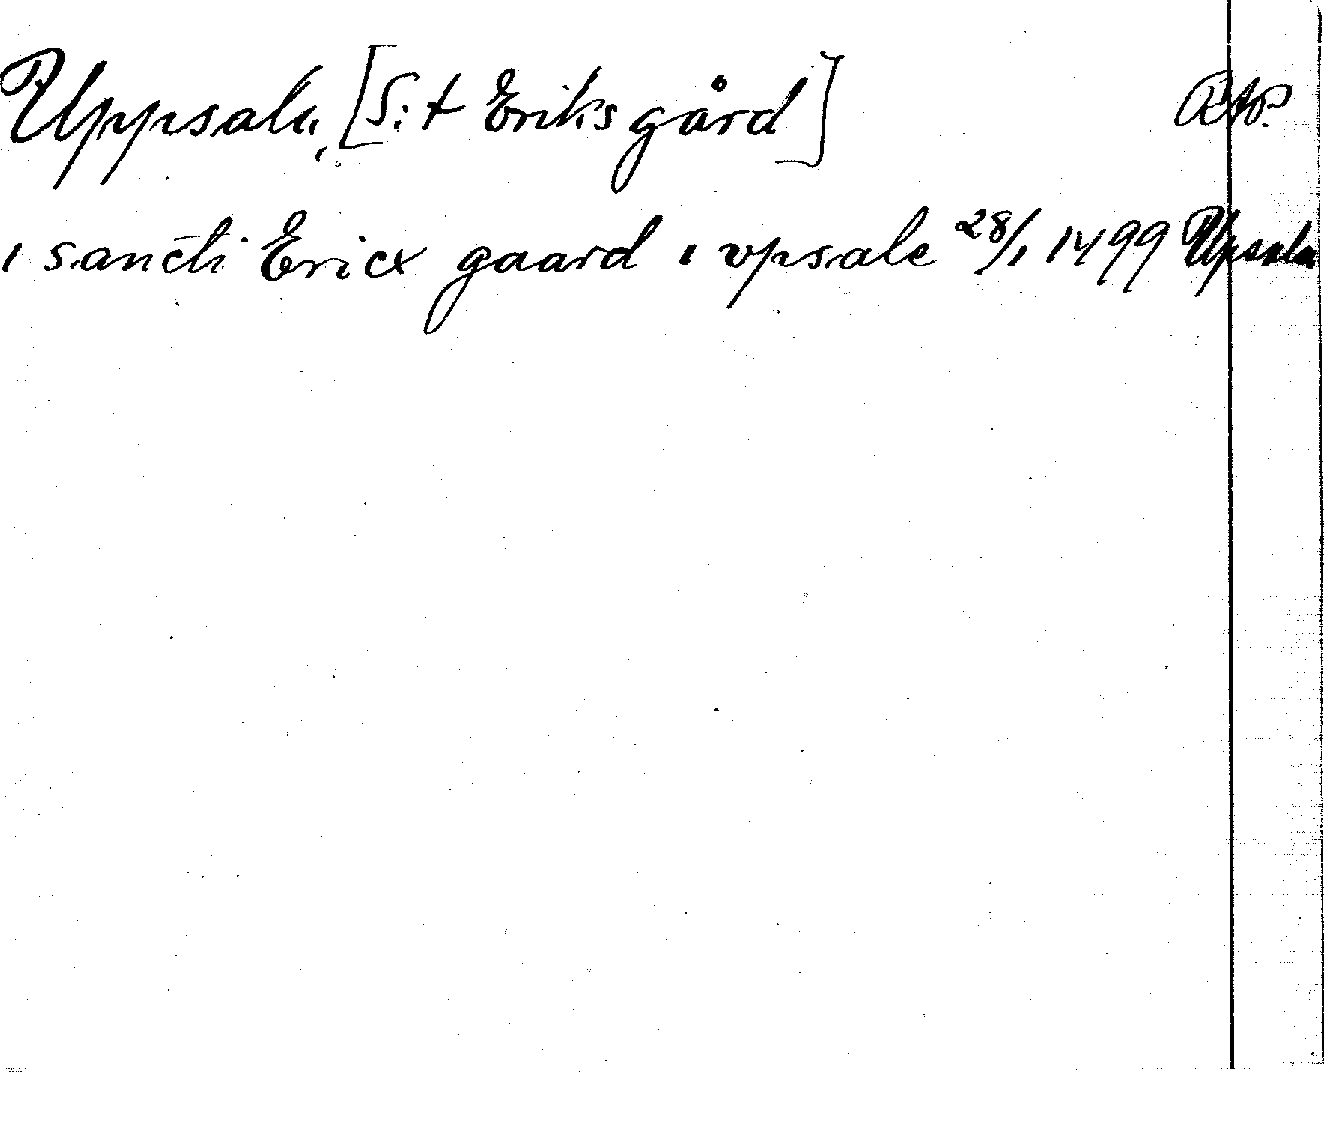 Uppsala, [S:t Eriks gård] RAP.
i sancti Ericx gaard i vpsale 28/1 1499 Upsala